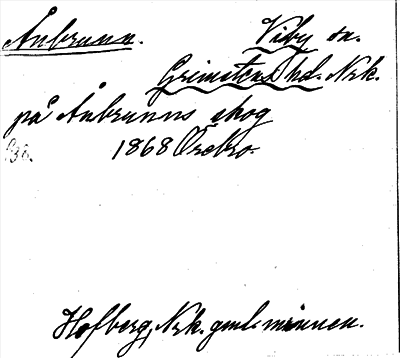 Åbrunn. Viby sn.
Grimstens hd. Nrk.
på Åbrunns skog
1868 Örebro.
Hofberg, Nrk. gmla minnen.